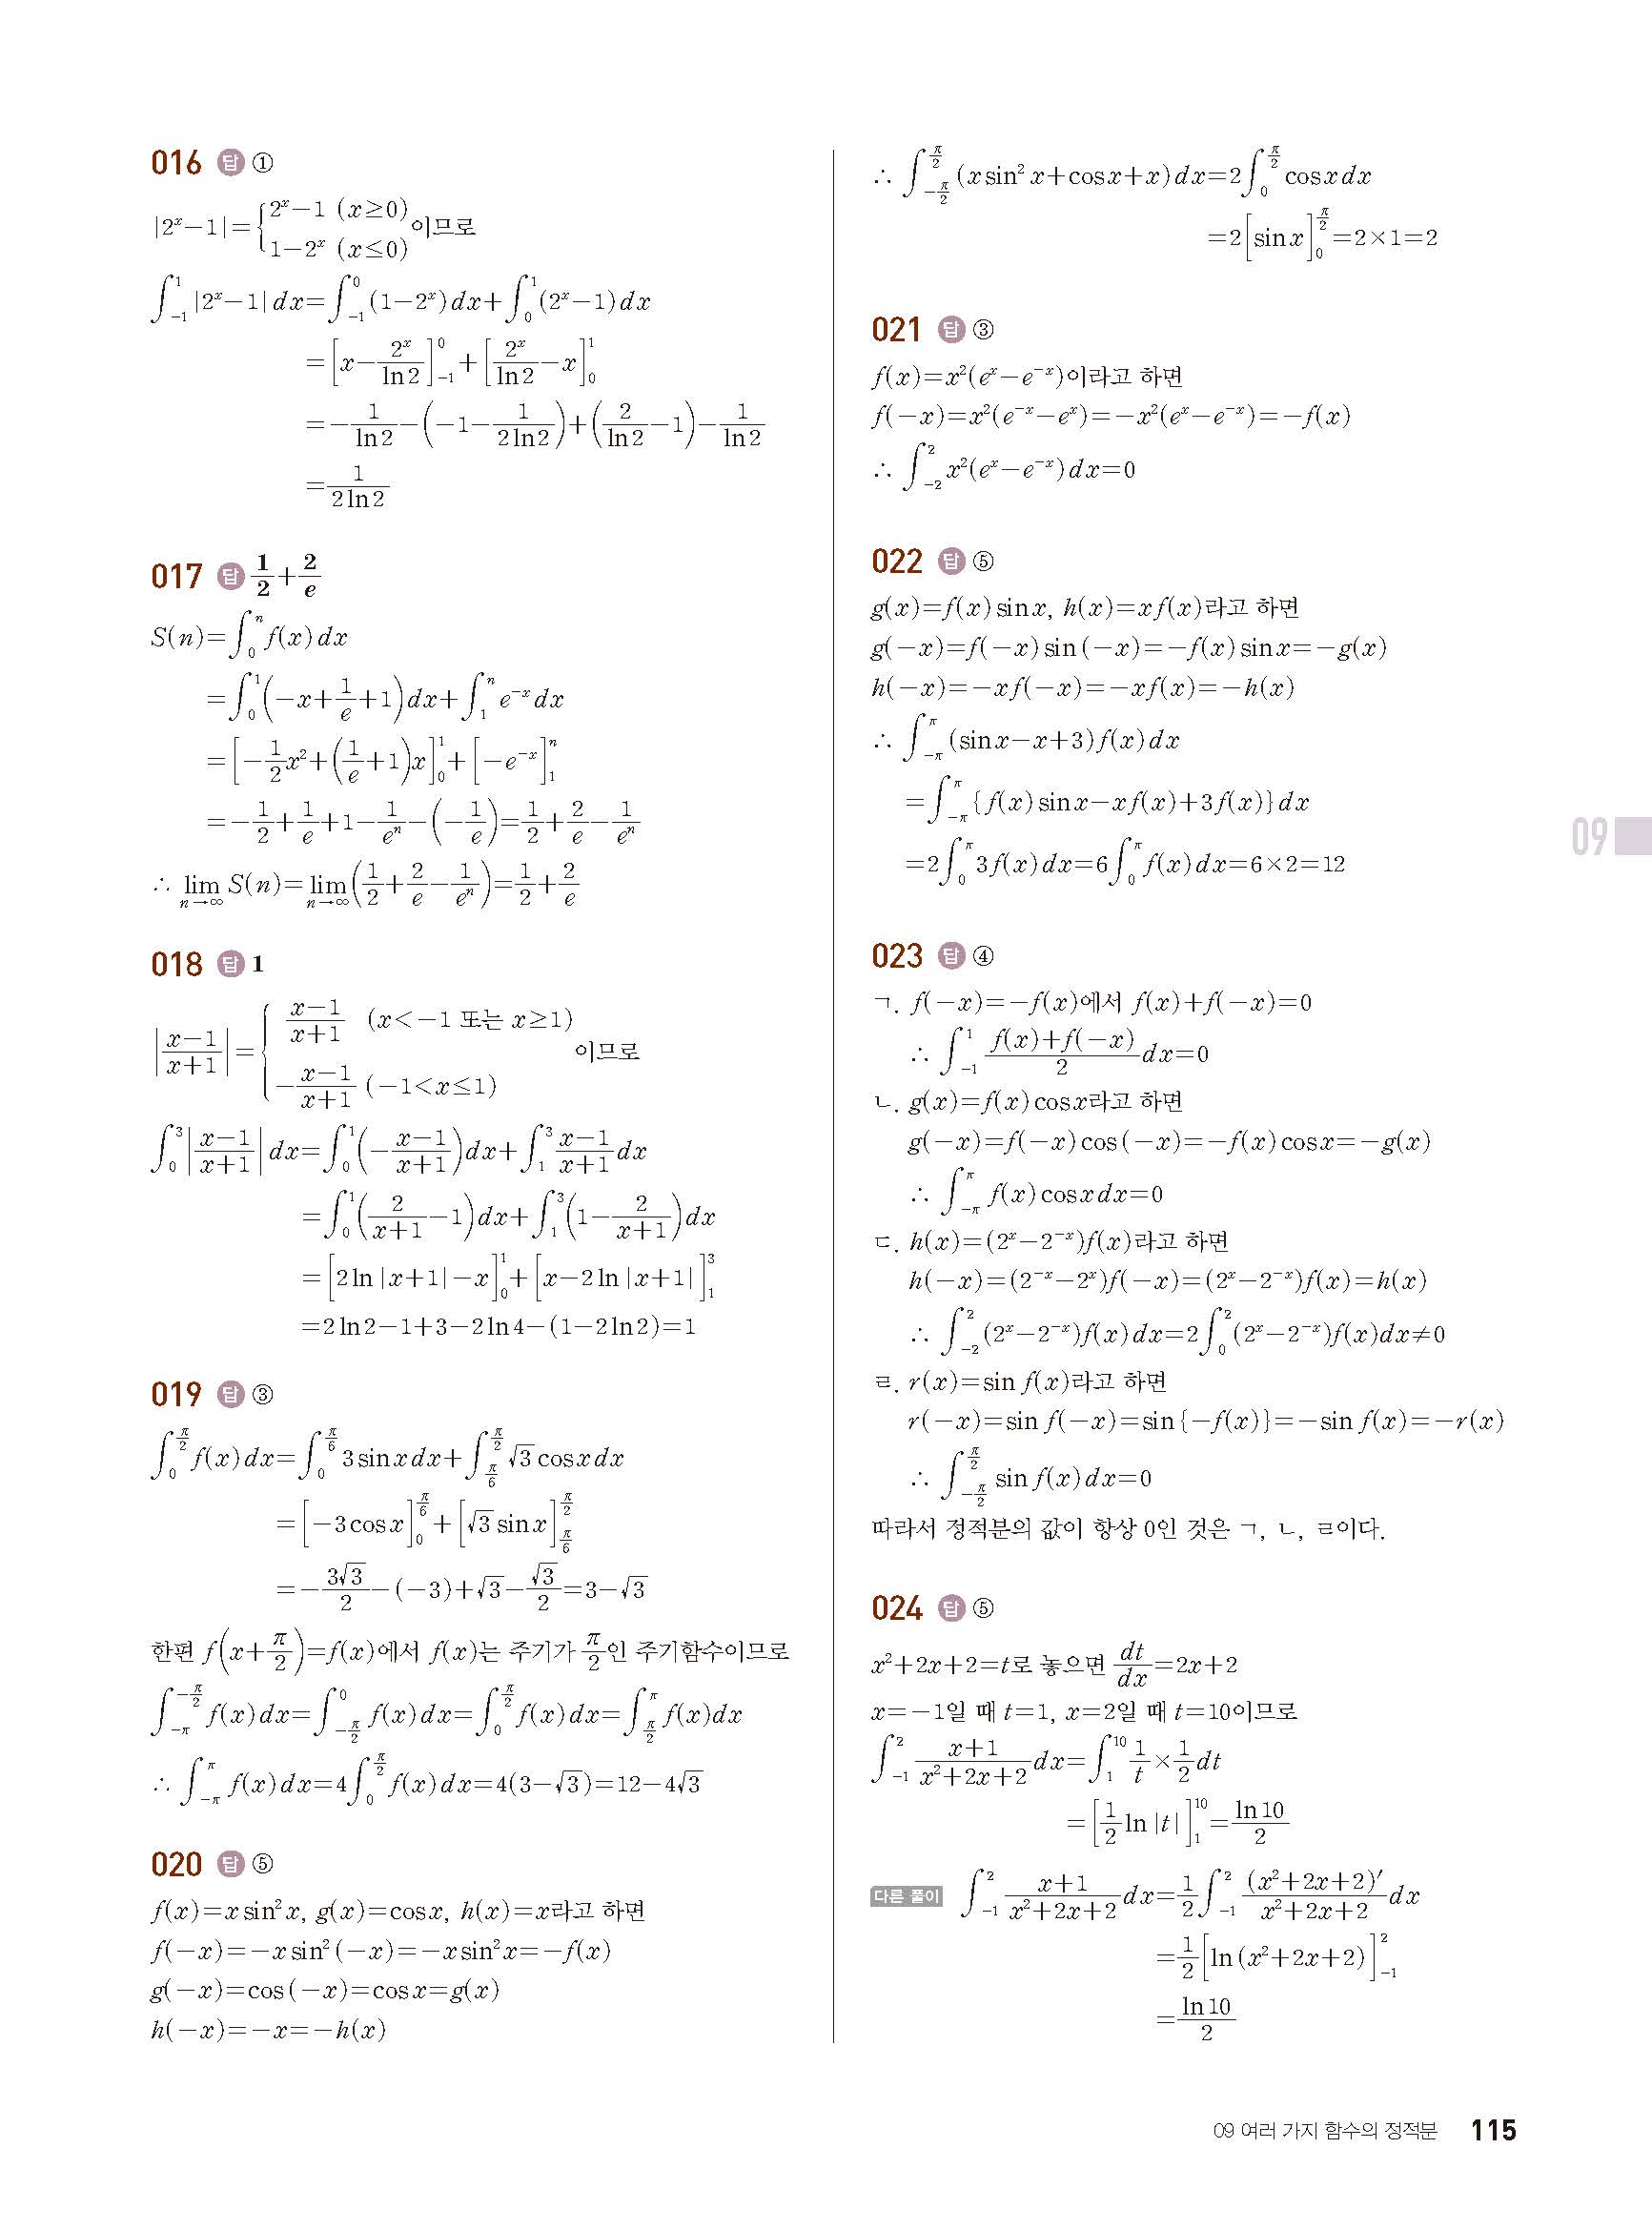 016 답 ①
|2ˣ−1|={2ˣ−1 (x≥0) 1−2ˣ (x≤0) 이므로
∫_{-1}^{1}|2ˣ−1|dx=∫_{-1}^{0}(1−2ˣ)dx+∫_{0}^{1}(2ˣ−1)dx
=[x−2ˣ/ln2]_{-1}^{0}+[2ˣ/ln2−x]_{0}^{1}
=−1/ln2−(−1−1/2ln2)+(2/ln2−1)−1/ln2
=1/2ln2
017 답 1/2+2/e
S(n)=∫_{0}^{n}f(x)dx
=∫_{0}^{1}(−x+1/e+1)dx+∫_{1}^{n}e^{−x}dx
=[−1/2x²+(1/e+1)x]_{0}^{1}+[−e^{−x}]_{1}^{n}
=−1/2+1/e+1−1/eⁿ−(−1/e)=1/2+2/e−1/eⁿ
∴ lim_{n→∞}S(n)=lim_{n→∞}(1/2+2/e−1/eⁿ)=1/2+2/e
018 답 1
|(x−1)/(x+1)|={(x−1)/(x+1) (x<−1 또는 x≥1) −(x−1)/(x+1) (−1<x≤1) 이므로
∫_{0}^{3}|(x−1)/(x+1)|dx=∫_{0}^{1}(−(x−1)/(x+1))dx+∫_{1}^{3}(x−1)/(x+1)dx
=∫_{0}^{1}(2/(x+1)−1)dx+∫_{1}^{3}(1−2/(x+1))dx
=[2ln|x+1|−x]_{0}^{1}+[x−2ln|x+1|]_{1}^{3}
=2ln2−1+3−2ln4−(1−2ln2)=1
019 답 ③
∫_{0}^{π/2}f(x)dx=∫_{0}^{π/6}3sinxdx+∫_{π/6}^{π/2}√3cosxdx
=[−3cosx]_{0}^{π/6}+[√3sinx]_{π/6}^{π/2}
=−3√3/2−(−3)+√3−√3/2=3−√3
한편 f(x+π/2)=f(x)에서 f(x)는 주기가 π/2인 주기함수이므로
∫_{-π}^{-π/2}f(x)dx=∫_{-π/2}^{0}f(x)dx=∫_{0}^{π/2}f(x)dx=∫_{π/2}^{π}f(x)dx
∴ ∫_{-π}^{π}f(x)dx=4∫_{0}^{π/2}f(x)dx=4(3−√3)=12−4√3
020 답 ⑤
f(x)=xsin²x, g(x)=cosx, h(x)=x라고 하면
f(−x)=−xsin²(−x)=−xsin²x=−f(x)
g(−x)=cos(−x)=cosx=g(x)
h(−x)=−x=−h(x)
∴ ∫_{-π/2}^{π/2}(xsin²x+cosx+x)dx=2∫_{0}^{π/2}cosxdx
=2[sinx]_{0}^{π/2}=2×1=2
021 답 ③
f(x)=x²(eˣ−e^{−x})이라고 하면
f(−x)=x²(e^{−x}−eˣ)=−x²(eˣ−e^{−x})=−f(x)
∴ ∫_{-2}^{2}x²(eˣ−e^{−x})dx=0
022 답 ⑤
g(x)=f(x)sinx, h(x)=xf(x)라고 하면
g(−x)=f(−x)sin(−x)=−f(x)sinx=−g(x)
h(−x)=−xf(−x)=−xf(x)=−h(x)
∴ ∫_{-π}^{π}(sinx−x+3)f(x)dx
=∫_{-π}^{π}{f(x)sinx−xf(x)+3f(x)}dx
=2∫_{0}^{π}3f(x)dx=6∫_{0}^{π}f(x)dx=6×2=12
023 답 ④
ㄱ. f(−x)=−f(x)에서 f(x)+f(−x)=0
∴ ∫_{-1}^{1}(f(x)+f(−x))/2dx=0
ㄴ. g(x)=f(x)cosx라고 하면
g(−x)=f(−x)cos(−x)=−f(x)cosx=−g(x)
∴ ∫_{-π}^{π}f(x)cosxdx=0
ㄷ. h(x)=(2ˣ−2^{−x})f(x)라고 하면
h(−x)=(2^{−x}−2ˣ)f(−x)=(2ˣ−2^{−x})f(x)=h(x)
∴ ∫_{-2}^{2}(2ˣ−2^{−x})f(x)dx=2∫_{0}^{2}(2ˣ−2^{−x})f(x)dx≠0
ㄹ. r(x)=sin f(x)라고 하면
r(−x)=sin f(−x)=sin{−f(x)}=−sin f(x)=−r(x)
∴ ∫_{-π/2}^{π/2}sin f(x)dx=0
따라서 정적분의 값이 항상 0인 것은 ㄱ, ㄴ, ㄹ이다.
024 답 ⑤
x²+2x+2=t로 놓으면 dt/dx=2x+2
x=−1일 때 t=1, x=2일 때 t=10이므로
∫_{-1}^{2}(x+1)/(x²+2x+2)dx=∫_{1}^{10}1/t×1/2dt
=[1/2ln|t|]_{1}^{10}=ln10/2
다른 풀이 ∫_{-1}^{2}(x+1)/(x²+2x+2)dx=1/2∫_{-1}^{2}(x²+2x+2)′/(x²+2x+2)dx
=1/2[ln(x²+2x+2)]_{-1}^{2}
=ln10/2
09
09 여러 가지 함수의 정적분 115